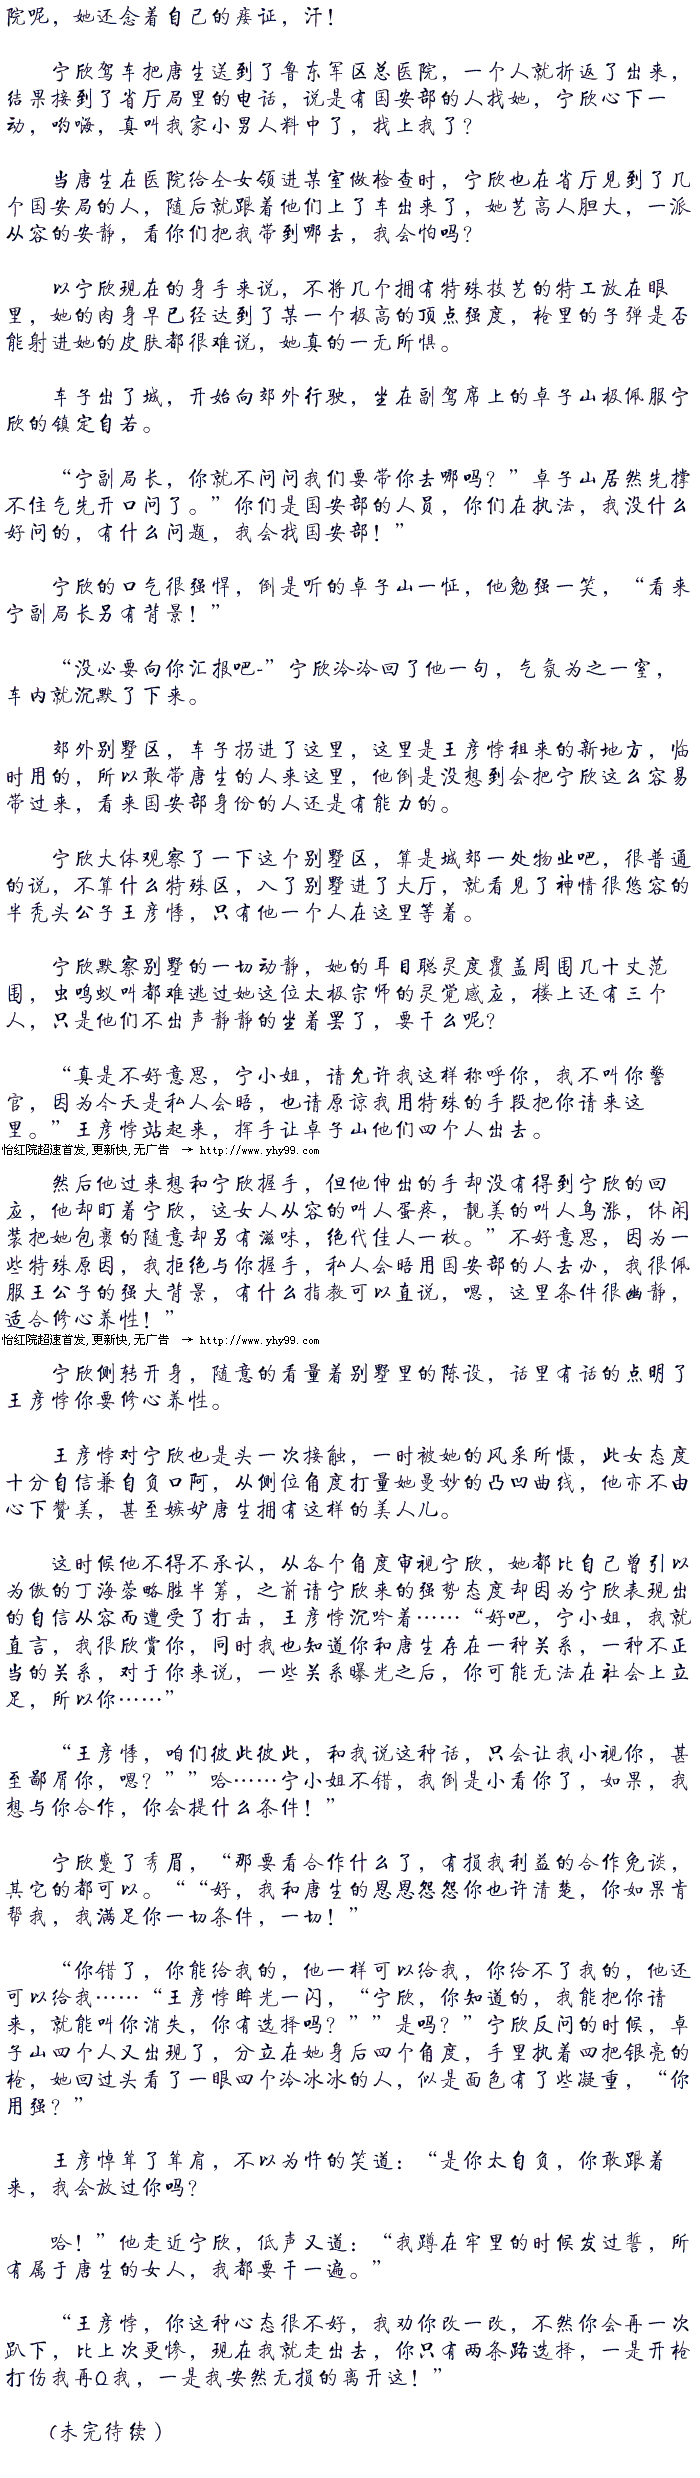 院呢，她还念着自己的痿证，汗！
宁欣驾车把唐生送到了鲁东军区总医院，一个人就折返了出来，
结果接到了省厅局里的电话，说是有国安部的人找她，宁欣心下一
动，哟嗨，真叫我家小男人料中了，找上我了？
当唐生在医院给仝女领进某室做检查时，宁欣也在省厅见到了几
个国安局的人，随后就跟着他们上了车出来了，她艺高人胆大，一派
从容的安静，看你们把我带到哪去，我会怕吗？
以宁欣现在的身手来说，不将几个拥有特殊技艺的特工放在眼
里，她的肉身早已经达到了某一个极高的顶点强度，枪里的子弹是否
能射进她的皮肤都很难说，她真的一无所惧。
车子出了城，开始向郊外行驶，坐在副驾席上的卓子山极佩服宁
欣的镇定自若。
“宁副局长，你就不问问我们要带你去哪吗？”卓子山居然先撑
不住气先开口问了。”你们是国安部的人员，你们在执法，我没什么
好问的，有什么问题，我会找国安部！”
宁欣的口气很强悍，倒是听的卓子山一怔，他勉强一笑，“看来
宁副局长另有背景！”
“没必要向你汇报吧-”宁欣冷冷回了他一句，气氛为之一室，
车内就沉默了下来。
郊外别墅区，车子拐进了这里，这里是王彦悖租来的新地方，临
时用的，所以敢带唐生的人来这里，他倒是没想到会把宁欣这么容易
带过来，看来国安部身份的人还是有能力的。
宁欣大体观察了一下这个别墅区，算是城郊一处物业吧，很普通
的说，不算什么特殊区，入了别墅进了大厅，就看见了神情很悠容的
半秃头公子王彦悖，只有他一个人在这里等着。
宁欣默察别墅的一切动静，她的耳目聪灵度覆盖周围几十丈范
围，虫鸣蚁叫都难逃过她这位太极宗师的灵觉感应，楼上还有三个
人，只是他们不出声静静的坐着罢了，要干么呢？
“真是不好意思，宁小姐，请允许我这样称呼你，我不叫你警
官，因为今天是私人会晤，也请原谅我用特殊的手段把你请来这
里。”王彦悖站起来，挥手让卓子山他们四个人出去。
怡红院超速首发,更新快,无广告 → http://www.yhy99.com
然后他过来想和宁欣握手，但他伸出的手却没有得到宁欣的回
应，他却盯着宁欣，这女人从容的叫人蛋疼，靓美的叫人鸟涨，休闲
装把她包裹的随意却另有滋味，绝代佳人一枚。”不好意思，因为一
些特殊原因，我拒绝与你握手，私人会晤用国安部的人去办，我很佩
服王公子的强大背景，有什么指教可以直说，嗯，这里条件很幽静，
适合修心养性！”
怡红院超速首发,更新快,无广告 → http://www.yhy99.com
宁欣侧转开身，随意的看量着别墅里的陈设，话里有话的点明了
王彦悖你要修心养性。
王彦悖对宁欣也是头一次接触，一时被她的风采所慑，此女态度
十分自信兼自负口阿，从侧位角度打量她曼妙的凸凹曲线，他亦不由
心下赞美，甚至嫉妒唐生拥有这样的美人儿。
这时候他不得不承认，从各个角度审视宁欣，她都比自己曾引以
为傲的丁海蓉略胜半筹，之前请宁欣来的强势态度却因为宁欣表现出
的自信从容而遭受了打击，王彦悖沉吟着……“好吧，宁小姐，我就
直言，我很欣赏你，同时我也知道你和唐生存在一种关系，一种不正
当的关系，对于你来说，一些关系曝光之后，你可能无法在社会上立
足，所以你……”
“王彦悖，咱们彼此彼此，和我说这种话，只会让我小视你，甚
至鄙屑你，嗯？””哈……宁小姐不错，我倒是小看你了，如果，我
想与你合作，你会提什么条件！”
宁欣蹙了秀眉，“那要看合作什么了，有损我利益的合作免谈，
其它的都可以。““好，我和唐生的恩恩怨怨你也许清楚，你如果肯
帮我，我满足你一切条件，一切！”
“你错了，你能给我的，他一样可以给我，你给不了我的，他还
可以给我……“王彦悖眸光一闪，“宁欣，你知道的，我能把你请
来，就能叫你消失，你有选择吗？””是吗？”宁欣反问的时候，卓
子山四个人又出现了，分立在她身后四个角度，手里执着四把银亮的
枪，她回过头看了一眼四个冷冰冰的人，似是面色有了些凝重，“你
用强？”
王彦悼耸了耸肩，不以为忤的笑道：“是你太自负，你敢跟着
来，我会放过你吗？
哈！”他走近宁欣，低声又道：“我蹲在牢里的时候发过誓，所
有属于唐生的女人，我都要干一遍。”
“王彦悖，你这种心态很不好，我劝你改一改，不然你会再一次
趴下，比上次更惨，现在我就走出去，你只有两条路选择，一是开枪
打伤我再Q我，一是我安然无损的离开这！”
（未完待续）